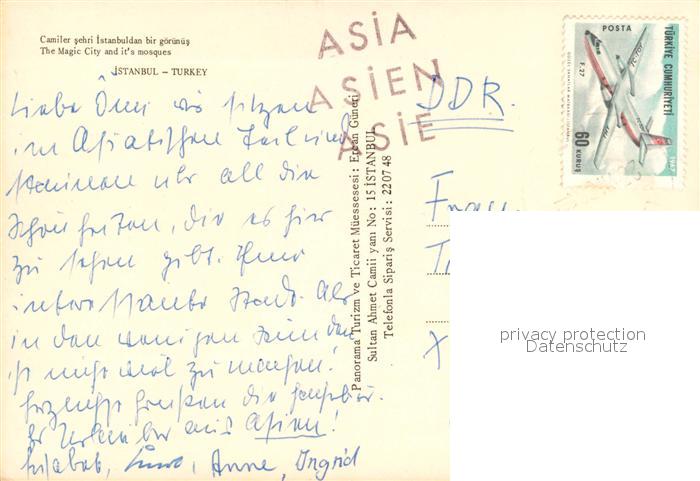 Camiler şehri İstanbuldan bir görünüş
The Magic City and it's mosques
İSTANBUL - TURKEY
ASIA
ASIEN
ASIE
POSTA
TÜRKİYE CUMHURİYETİ
F.27
TC-TOP
60 KURUŞ
1967
DDR.
Liebe Omi wir sitzen
im Asiatischen Teil und
staunen über all die
Schönheiten, die es hier
zu sehen gibt. Eine
interessante Stadt. Aber
in den wenigen Stunden
ist nicht viel zu machen!
Herzlichst grüßen die
Urlauber aus Asien!
Anne, Ingrid
Panorama Turizm ve Ticaret Müessesesi: Ercan Güneri
Sultan Ahmet Camii yanı No: 15 İSTANBUL
Telefonla Sipariş Servisi: 22 07 48
Frau
X
privacy protection
Datenschutz